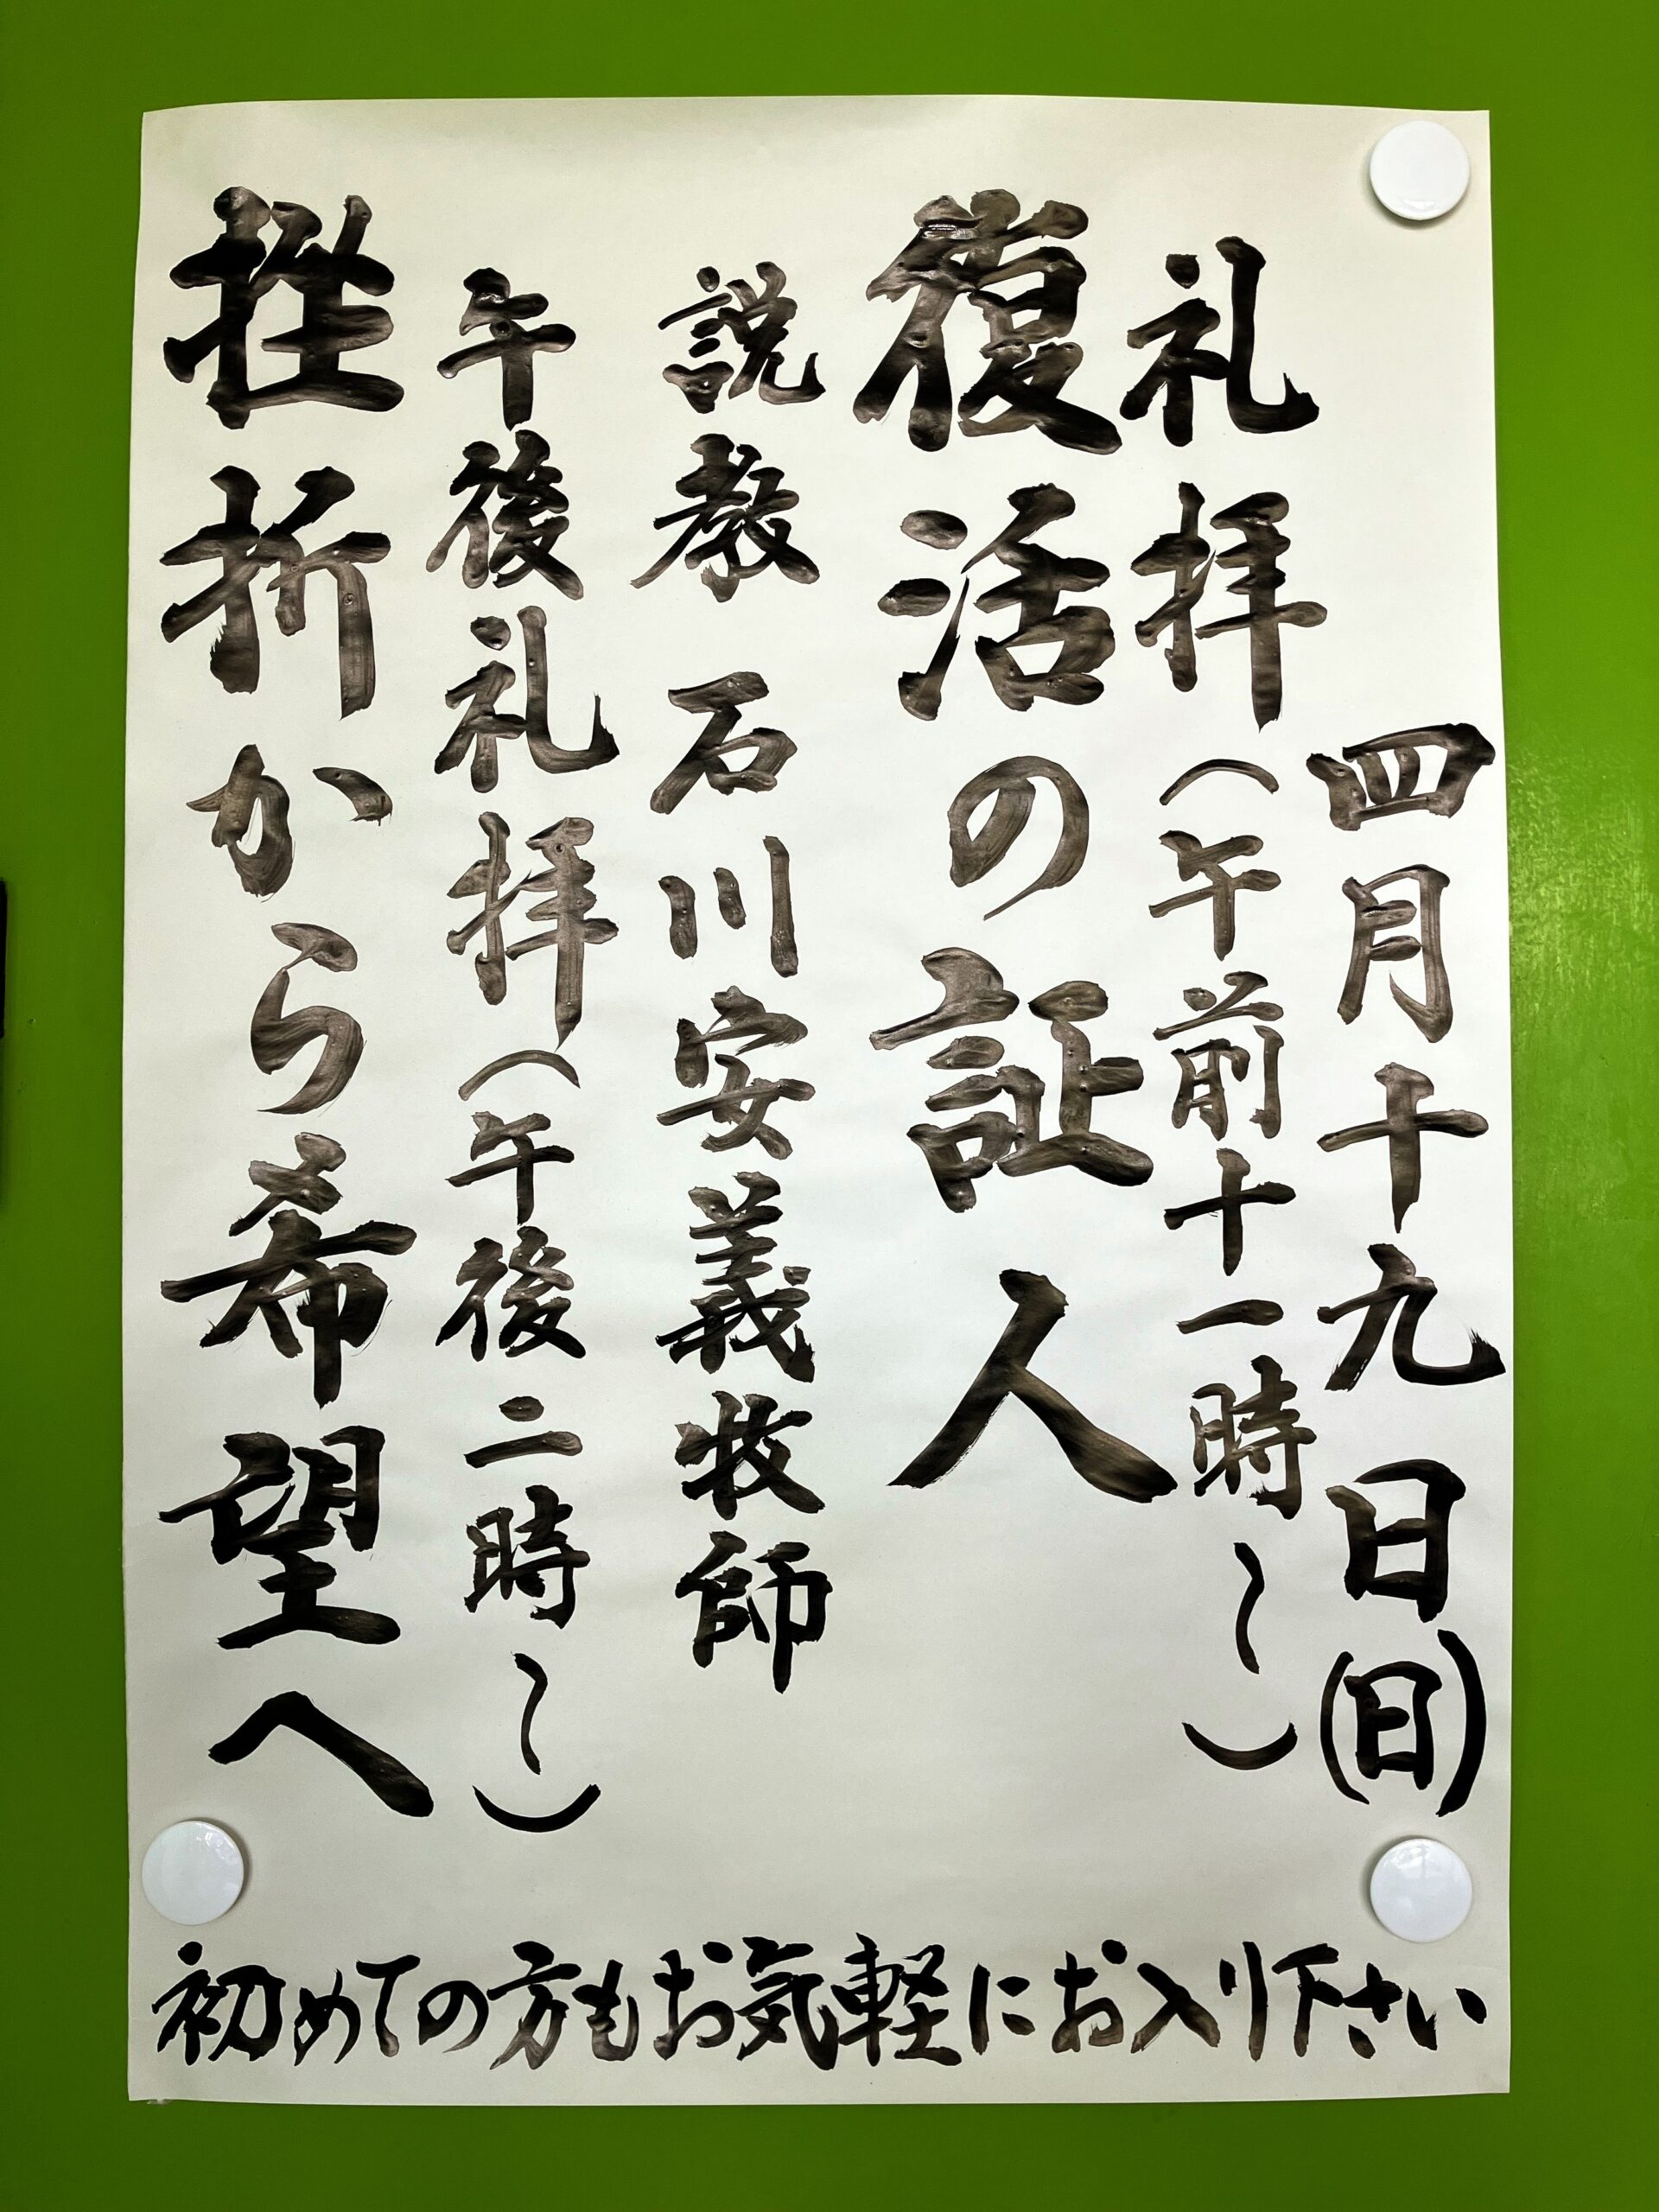 四月十九日(日)
礼拝(午前十一時〜)
復活の証人
説教 石川安義牧師
午後礼拝(午後二時〜)
挫折から希望へ
初めての方もお気軽にお入り下さい